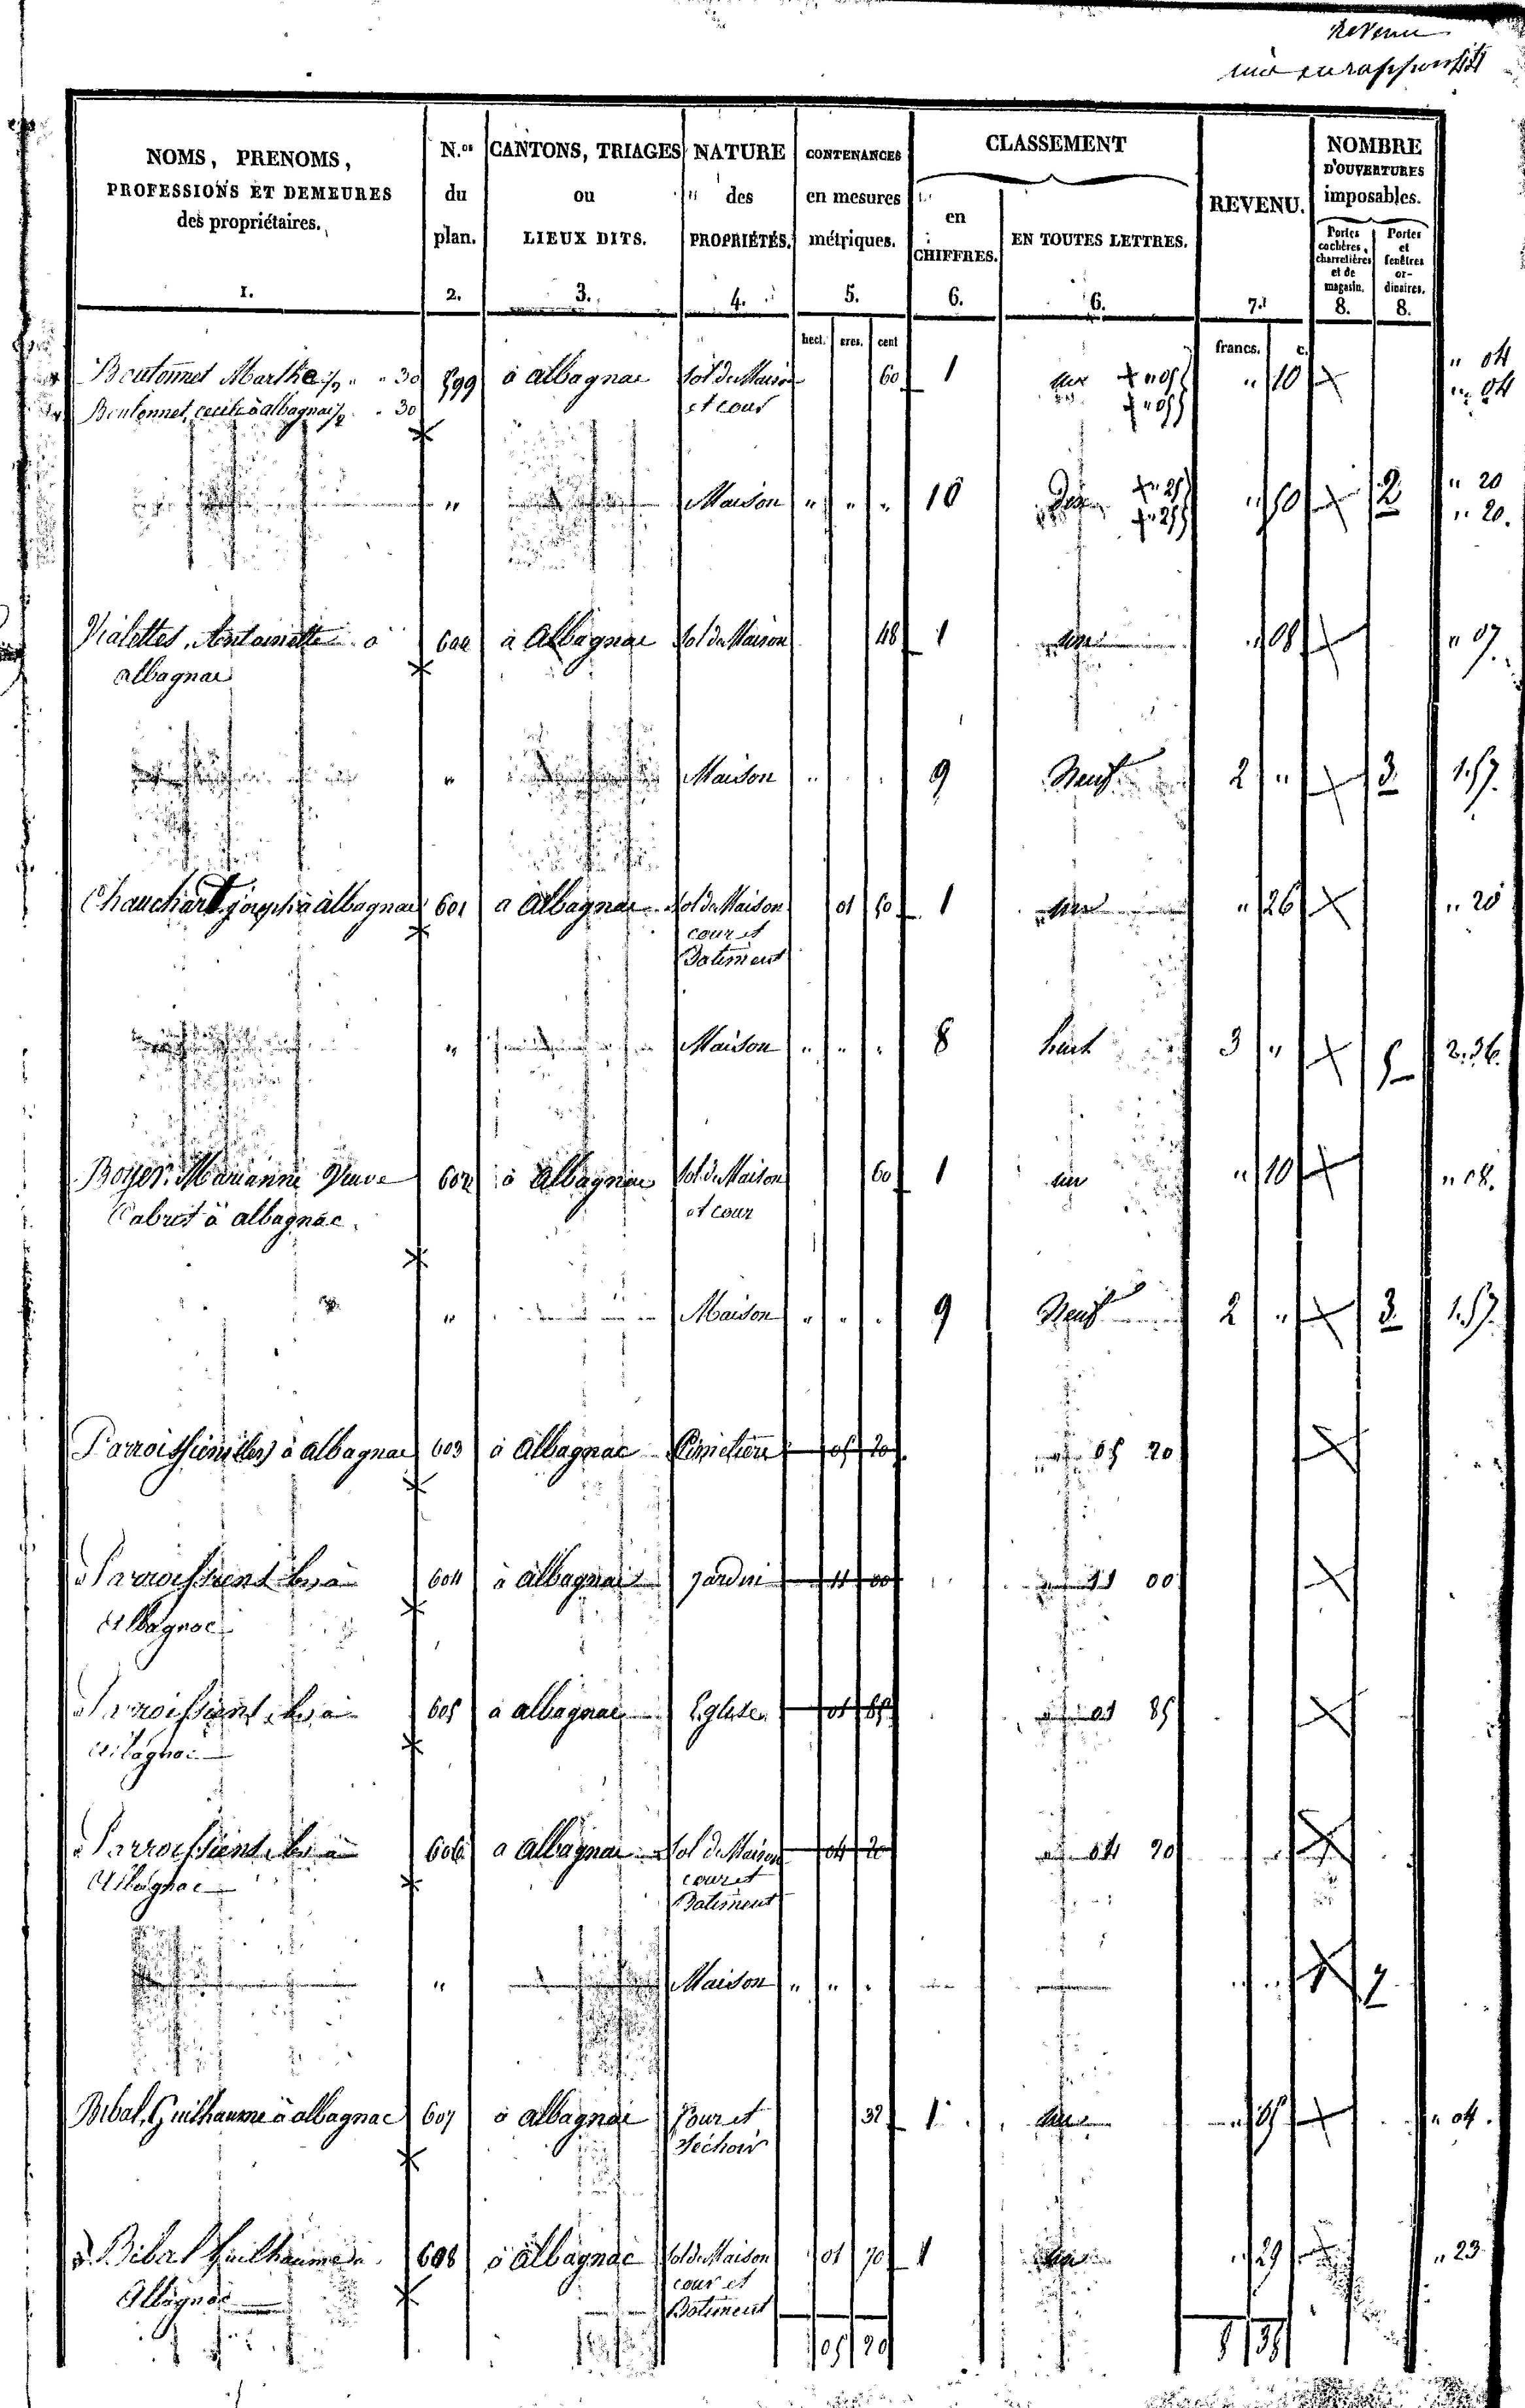 Revenu
NOMS, PRENOMS,
PROFESSIONS ET DEMEURES
des propriétaires.
1.
N.os
du
plan.
2.
CANTONS, TRIAGES
ou
LIEUX DITS.
3.
NATURE
des
PROPRIÉTÉS.
4.
CONTENANCES
en mesures
métriques.
5.
CLASSEMENT
en
CHIFFRES.
6.
EN TOUTES LETTRES.
6.
REVENU.
7.
NOMBRE
D'OUVERTURES
imposables.
Portes
cochères,
charretières
et de
magasin.
8.
Portes
et
fenêtres
or-
dinaires.
8.
hect. ares. cent francs. c.
Boutonnet Marthe 1/2 " " 30 599 à albagnac Sol de Maison 60 1 un " 10 " 04
Boutonnet, cecile à albagnac 1/2 " 30 et cour " 04
" Maison " " " 10 Dix " 50 2 " 20
" 20.
Vialettes, Antoinette à 600 à Albagnac Sol de Maison 48 1 un " 08 " 07.
albagnac
" Maison " 9 Neuf 2 " 3 1.57.
Chauchard joseph à albagnac 601 a albagnac Sol de Maison 01 50 1 un " 26 " 20
cour et
Batiment
" Maison " " " 8 huit 3 " 5 2.36.
Boyer Marianne Veuve 602 à Albagnac Sol de Maison 60 1 un " 10 " 08.
Cabret à albagnac et cour
" Maison " " " 9 Neuf 2 " 3 1.57.
Parroissiens (les) à albagnac 603 à albagnac Cimetière 05 20 05 20
Parroissiens les à 604 à albagnac jardin 11 00 11 00
Albagnac
Parroissiens les à 605 à albagnac Eglise 01 85 01 85
Albagnac
Parroissiens les à 606 a albagnac Sol de Maison 04 20 04 20
Albagnac cour et
Batiment
" Maison " " " 7
Bibal, Guilhaume à albagnac 607 à albagnac Four et 32 1 un " 05 " 04.
Séchoir
Bibal Guilhaume à 608 à Albagnac Sol de Maison 01 70 1 un " 29 " 23
Albagnac cour et
Batiment
05 20 8 38